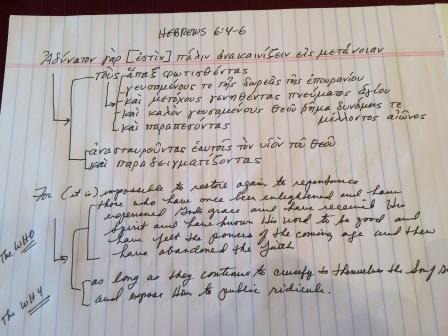 HEBREWS 6:4-6
Ἀδύνατον γὰρ [ἐστὶν] πάλιν ἀνακαινίζειν εἰς μετάνοιαν
τοὺς ἅπαξ φωτισθέντας
γευσαμένους τε τῆς δωρεᾶς τῆς ἐπουρανίου
καὶ μετόχους γενηθέντας πνεύματος ἁγίου
καὶ καλὸν γευσαμένους θεοῦ ῥῆμα δυνάμεις τε
μέλλοντος αἰῶνος
καὶ παραπεσόντας
ἀνασταυροῦντας ἑαυτοῖς τὸν υἱὸν τοῦ θεοῦ
καὶ παραδειγματίζοντας
For (it is) impossible to restore again to repentance
those who have once been enlightened and have
experienced God's grace and have received His
Spirit and have known His word to be good and
have felt the powers of the coming age and then
have abandoned the faith
The WHO
as long as they continue to crucify to themselves the Son of
and expose Him to public ridicule.
The WHY